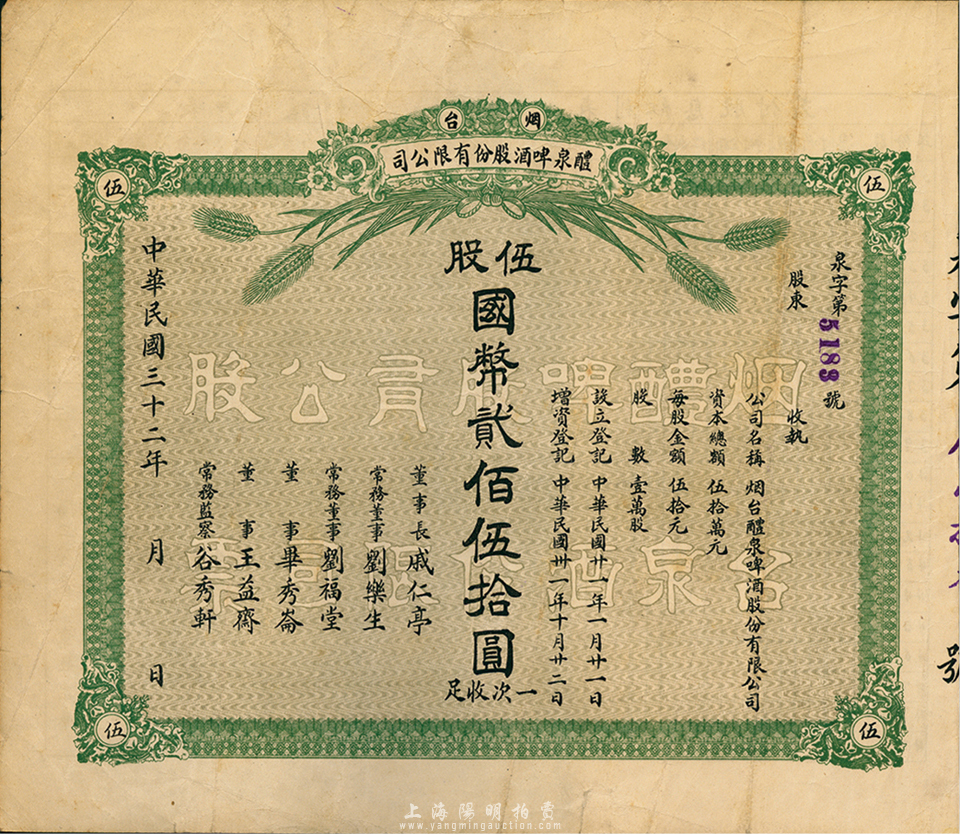 烟台
醴泉啤酒股份有限公司
伍
伍
泉字第5183號
股東 收執
公司名稱 烟台醴泉啤酒股份有限公司
資本總額 伍拾萬元
每股金額 伍拾元
股數 壹萬股
設立登記 中華民國廿一年一月廿一日
增資登記 中華民國卅一年十月廿二日
伍股
國幣貳佰伍拾圓
一次收足
董事長 戚仁亭
常務董事 劉樂生
常務董事 劉福堂
董事 畢秀崙
董事 王益齋
常務監察 谷秀軒
中華民國三十二年 月 日
烟台醴泉啤酒股份有限公司股票
伍
伍
號
上海陽明拍賣
www.yangmingauction.com